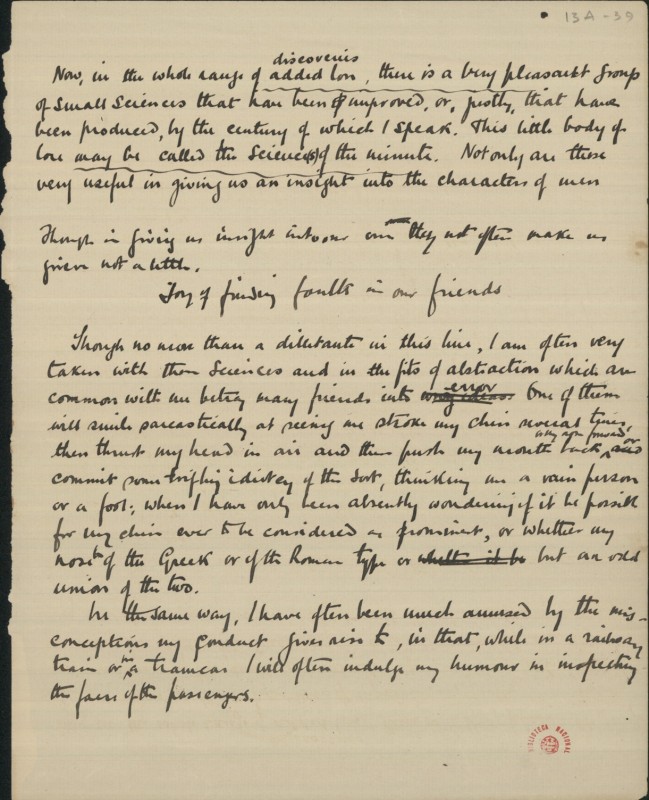 13A-39
discoveries
Now, in the whole range of added lore, there is a very pleasant group
of small sciences that have been improved, or, justly, that have
been produced, by the century of which I speak. This little body of
lore may be called the Science(s) of the minute. Not only are these
very useful in giving us an insight into the characters of men
Though in giving us insight into our own they not often make us
grieve not a little.
Joy of finding faults in our friends
Though no more than a dilettante in this line, I am often very
taken with these sciences and in the fits of abstraction which are
common with me betray many friends into error. One of them
will smile sarcastically at seeing me stroke my chin several times,
then thrust my head in air and then push my mouth back, or
commit some trifling idiotcy of the sort, thinking me a vain person
or a fool; when I have only been absently wondering if it be possible
for my chin ever to be considered as prominent, or whether my
nose of the Greek or of the Roman type or whether it be but an odd
union of the two.
In the same way, I have often been much amused by the mis-
conceptions my conduct gives rise to, in that, while in a railway
train or in a tramcar I will often indulge my humour in inspecting
the faces of the passengers.
BIBLIOTECA NACIONAL